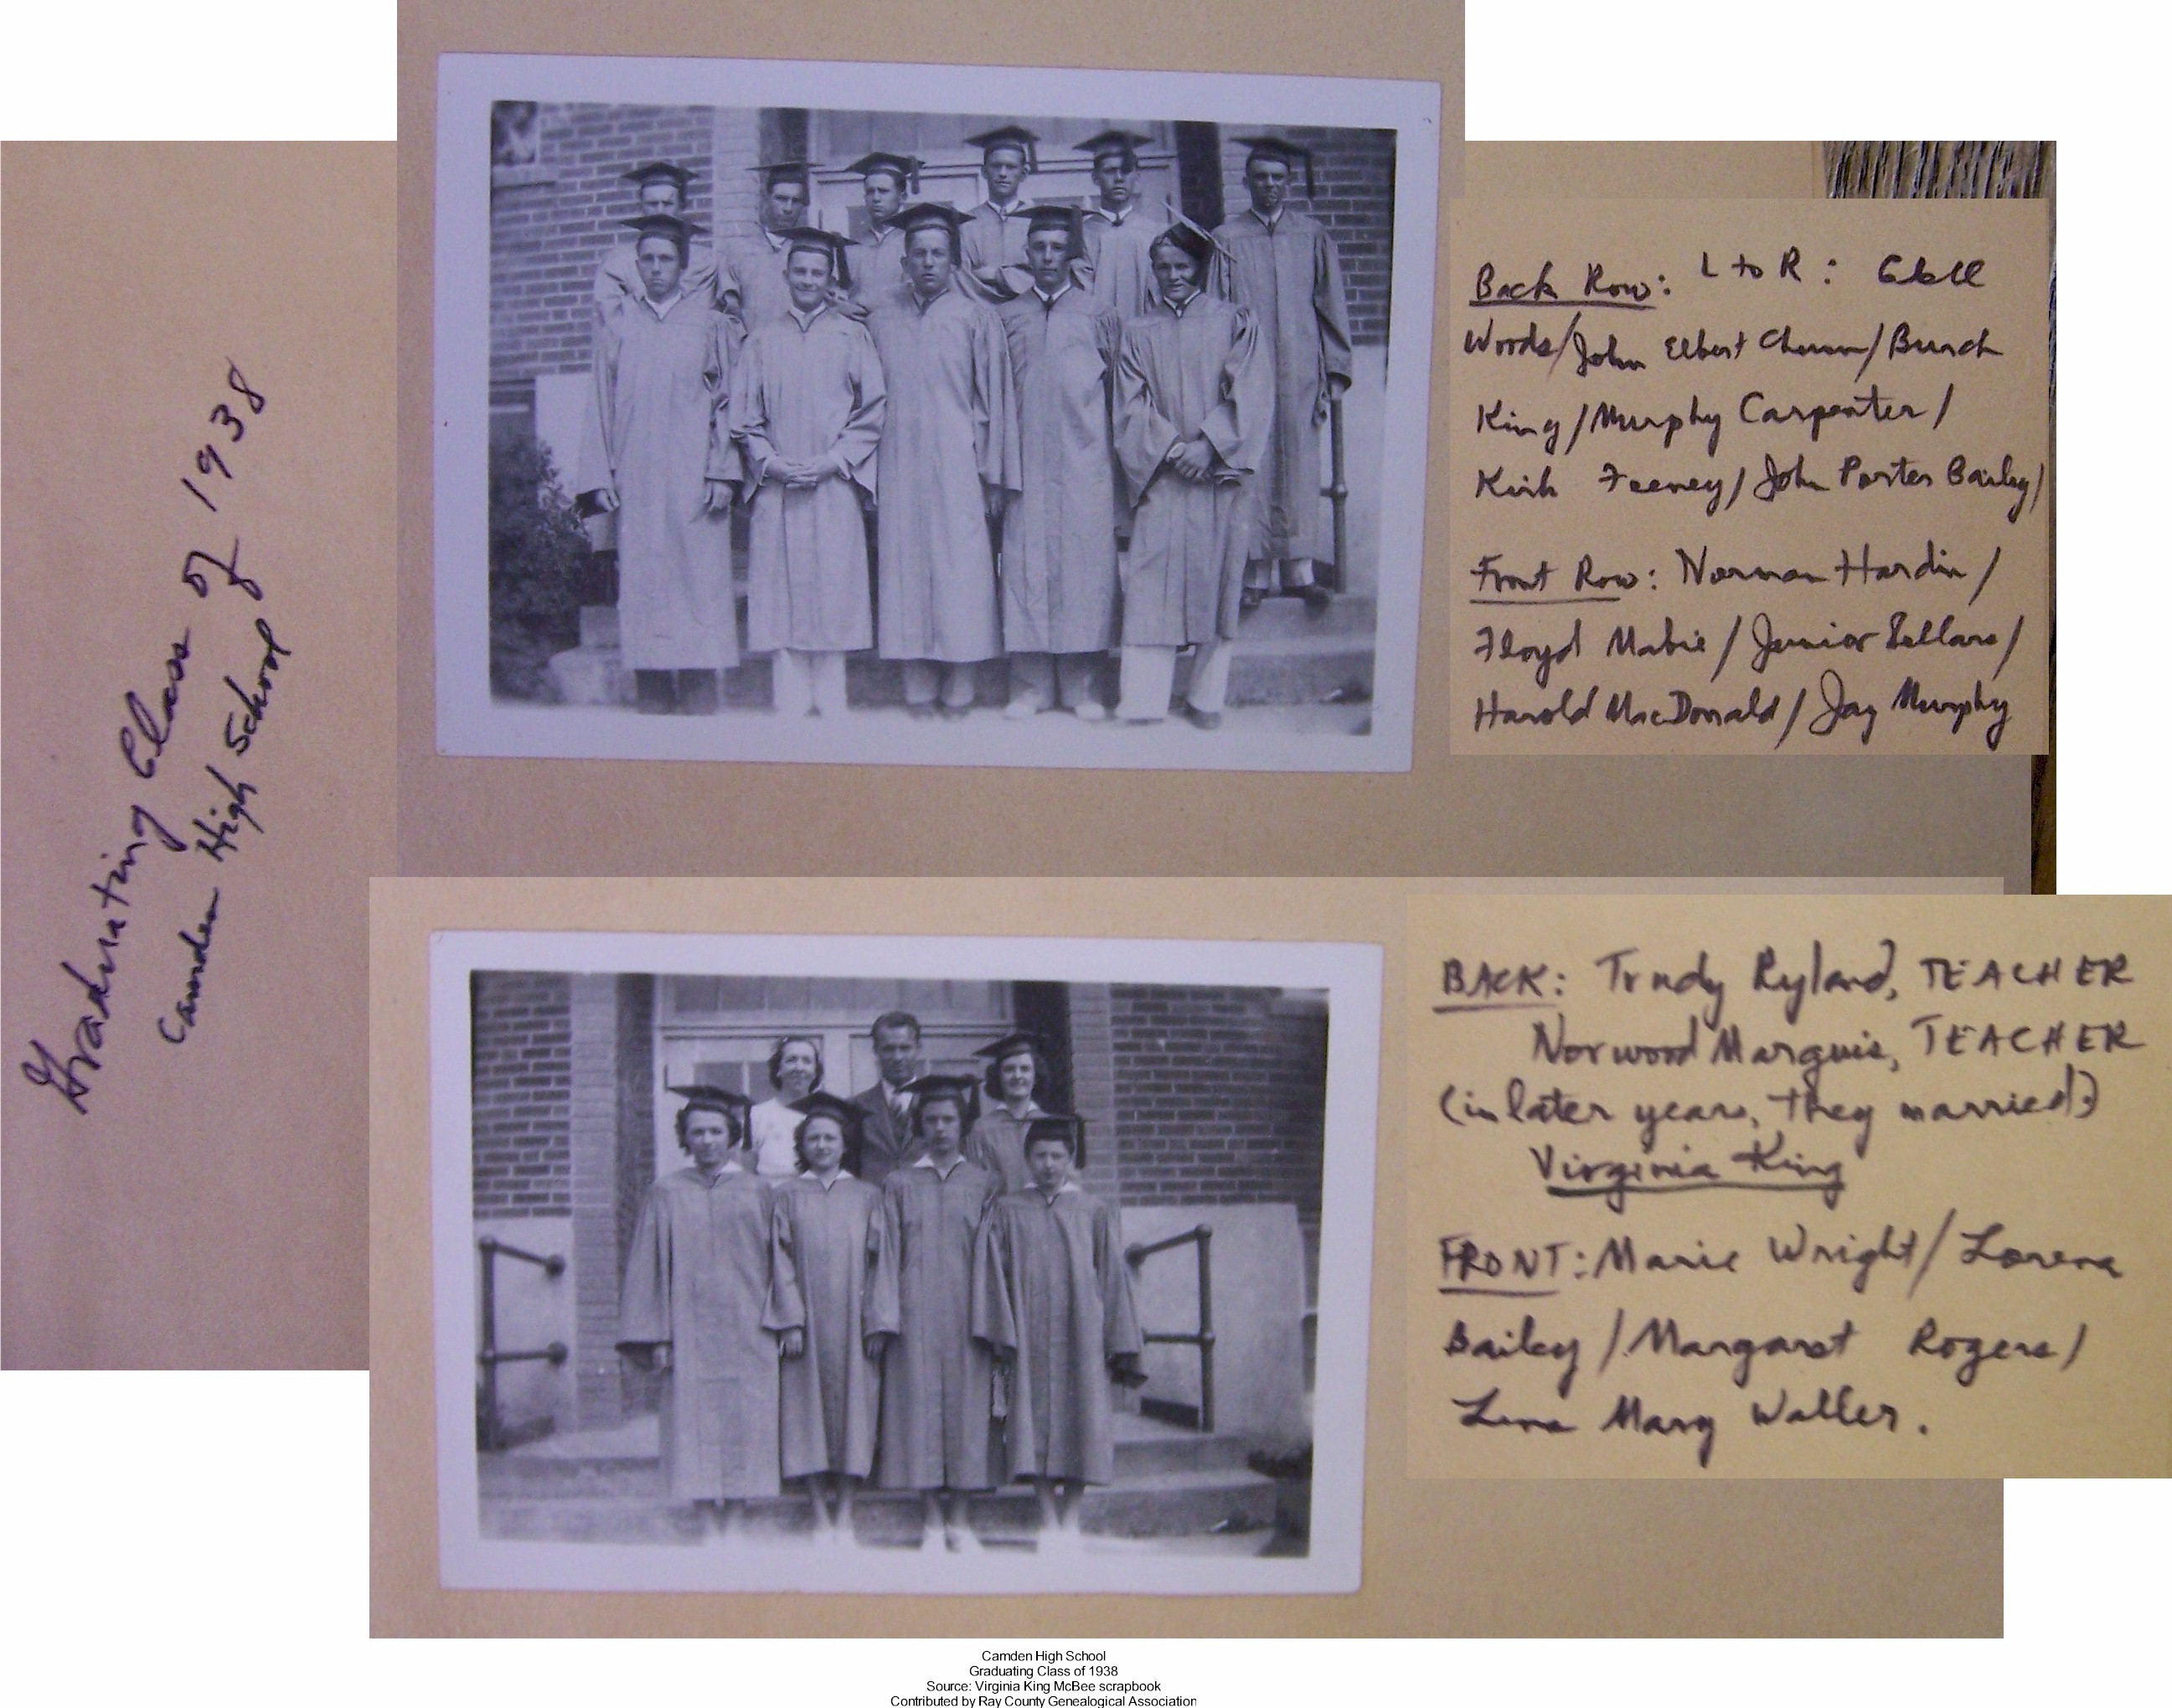 Graduating Class of 1938
Camden High School
Back Row: L to R:
Woods/John Elbert /Bunch
King/Murphy Carpenter/
Kirk Feeney/John Porter Bailey/
Front Row: Norman Hardin/
Floyd Mabie/Junior Sellars/
Harold MacDonald/Jay Murphy
BACK: Trudy Ryland, TEACHER
Norwood Marquis, TEACHER
(in later years, they married)
Virginia King
FRONT: Marie Wright/Lorena
Bailey/Margaret Rogers/
Lena Mary Waller.
Camden High School
Graduating Class of 1938
Source: Virginia King McBee scrapbook
Contributed by Ray County Genealogical Association